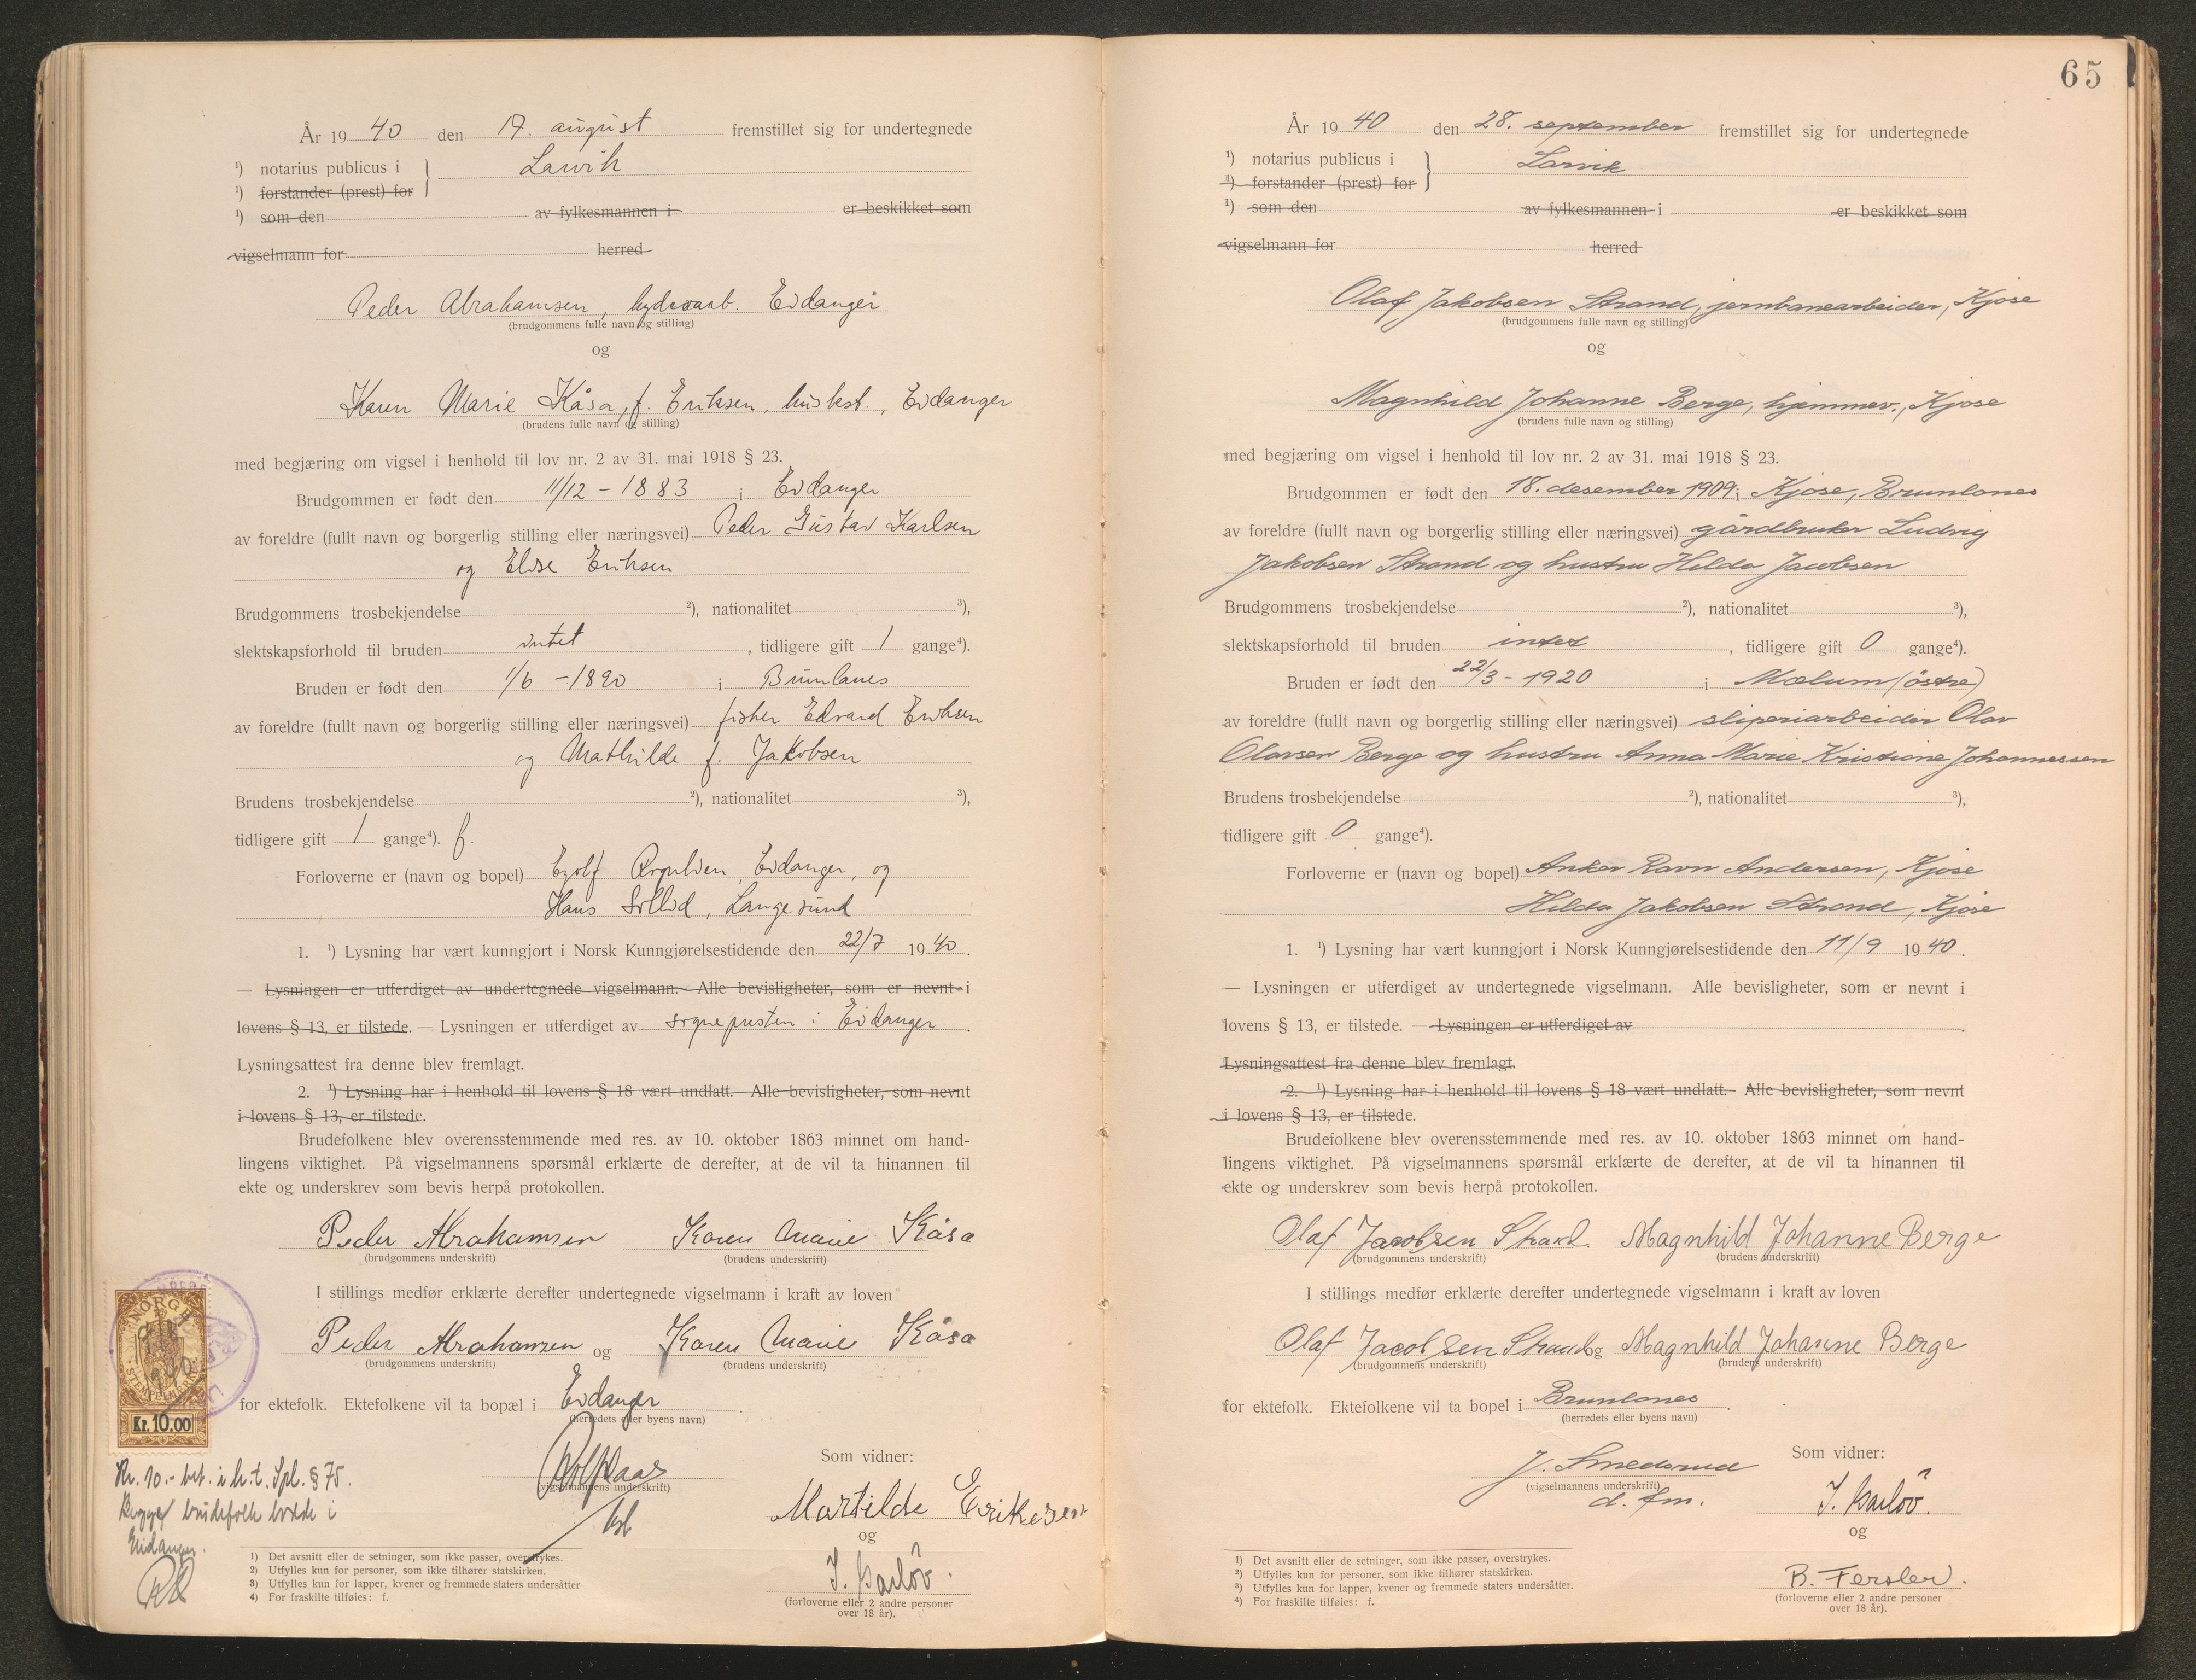 År 19 40 den 17. august fremstillet sig for undertegnede
¹) notarius publicus i } Larvik
¹) forstander (prest) for
¹) som den av fylkesmannen i er beskikket som
vigselmann for herred
Peder Abrahamsen, hydroarb. Eidanger
(brudgommens fulle navn og stilling)
og
Karen Marie Kåsa, f. Eriksen, husbest., Eidanger
(brudens fulle navn og stilling)
med begjæring om vigsel i henhold til lov nr. 2 av 31. mai 1918 § 23.
Brudgommen er født den 11/12 - 1883 i Eidanger
av foreldre (fullt navn og borgerlig stilling eller næringsvei) Peder Gustav Karlsen
og Elise Eriksen
Brudgommens trosbekjendelse ²), nationalitet ³),
slektskapsforhold til bruden intet, tidligere gift 1 gange⁴).
Bruden er født den 1/6 - 1890 i Brunlanes
av foreldre (fullt navn og borgerlig stilling eller næringsvei) fisker Edvard Eriksen
og Mathilde f. Jakobsen
Brudens trosbekjendelse ²), nationalitet ³),
tidligere gift 1 gange⁴). f.
Forloverne er (navn og bopel) Eyolf Eidanger, og
Hans Sollid, Langesund
1. ¹) Lysning har vært kunngjort i Norsk Kunngjørelsestidende den 22/7 1940.
— Lysningen er utferdiget av undertegnede vigselmann. Alle bevisligheter, som er nevnt i
lovens § 13, er tilstede. — Lysningen er utferdiget av sognepresten i Eidanger.
Lysningsattest fra denne blev fremlagt.
2. ¹) Lysning har i henhold til lovens § 18 vært undlatt. Alle bevisligheter, som nevnt
i lovens § 13, er tilstede.
Brudefolkene blev overensstemmende med res. av 10. oktober 1863 minnet om hand-
lingens viktighet. På vigselmannens spørsmål erklærte de derefter, at de vil ta hinannen til
ekte og underskrev som bevis herpå protokollen.
Peder Abrahamsen Karen Marie Kåsa
(brudgommens underskrift) (brudens underskrift)
I stillings medfør erklærte derefter undertegnede vigselmann i kraft av loven
Peder Abrahamsen og Karen Marie Kåsa
(brudgommens underskrift) (brudens underskrift)
for ektefolk. Ektefolkene vil ta bopæl i Eidanger.
(herredets eller byens navn)
NORGE
STEMPELMERKE
Kr. 10.00
Som vidner:
(vigselmannens underskrift)
Kr. 10.- bet. i h.t. Spl. § 75.
Begge brudefolk bodde i
Eidanger.
Martilde Eriksen
og
J. Barlöv.
(forloverne eller 2 andre personer
over 18 år).
1) Det avsnitt eller de setninger, som ikke passer, overstrykes.
2) Utfylles kun for personer, som ikke tilhører statskirken.
3) Utfylles kun for lapper, kvener og fremmede staters undersåtter
4) For fraskilte tilføies: f.
65
År 19 40 den 28. september fremstillet sig for undertegnede
¹) notarius publicus i } Larvik
¹) forstander (prest) for
¹) som den av fylkesmannen i er beskikket som
vigselmann for herred
Olaf Jakobsen Strand, jernbanearbeider, Kjose
(brudgommens fulle navn og stilling)
og
Magnhild Johanne Berge, hjemmev., Kjose
(brudens fulle navn og stilling)
med begjæring om vigsel i henhold til lov nr. 2 av 31. mai 1918 § 23.
Brudgommen er født den 18. desember 1909 i Kjose, Brunlanes
av foreldre (fullt navn og borgerlig stilling eller næringsvei) gårdbruker Ludvig
Jakobsen Strand og hustru Hilda Jacobsen
Brudgommens trosbekjendelse ²), nationalitet ³),
slektskapsforhold til bruden intet, tidligere gift 0 gange⁴).
Bruden er født den 22/3 - 1920 i Mælum (östre)
av foreldre (fullt navn og borgerlig stilling eller næringsvei) sliperiarbeider Olav
Olavsen Berge og hustru Anna Marie Kristiane Johannessen
Brudens trosbekjendelse ²), nationalitet ³),
tidligere gift 0 gange⁴).
Forloverne er (navn og bopel) Anker Ravn Andersen, Kjose
Hilda Jakobsen Strand, Kjose
1. ¹) Lysning har vært kunngjort i Norsk Kunngjørelsestidende den 11/9 1940.
— Lysningen er utferdiget av undertegnede vigselmann. Alle bevisligheter, som er nevnt i
lovens § 13, er tilstede. — Lysningen er utferdiget av .
Lysningsattest fra denne blev fremlagt.
2. ¹) Lysning har i henhold til lovens § 18 vært undlatt. Alle bevisligheter, som nevnt
i lovens § 13, er tilstede.
Brudefolkene blev overensstemmende med res. av 10. oktober 1863 minnet om hand-
lingens viktighet. På vigselmannens spørsmål erklærte de derefter, at de vil ta hinannen til
ekte og underskrev som bevis herpå protokollen.
Olaf Jacobsen Strand. Magnhild Johanne Berge
(brudgommens underskrift) (brudens underskrift)
I stillings medfør erklærte derefter undertegnede vigselmann i kraft av loven
Olaf Jacobsen Strand og Magnhild Johanne Berge
(brudgommens underskrift) (brudens underskrift)
for ektefolk. Ektefolkene vil ta bopel i Brunlanes.
(herredets eller byens navn)
Som vidner:
J. Smedsrud
(vigselmannens underskrift)
d. fm.
J. Barlöv.
og
B. Fersler.
(forloverne eller 2 andre personer
over 18 år).
1) Det avsnitt eller de setninger, som ikke passer, overstrykes.
2) Utfylles kun for personer, som ikke tilhører statskirken.
3) Utfylles kun for lapper, kvener og fremmede staters undersåtter.
4) For fraskilte tilføies: f.